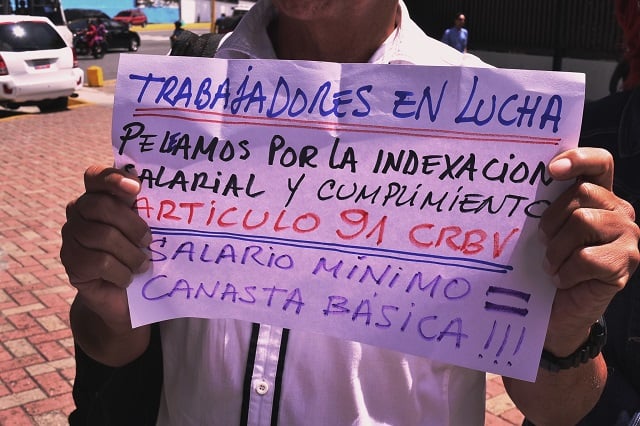 TRABAJADORES EN LUCHA
PELEAMOS POR LA INDEXACION
SALARIAL Y CUMPLIMIENTO
ARTICULO 91 CRBV
SALARIO MÍNIMO =
CANASTA BÁSICA !!!